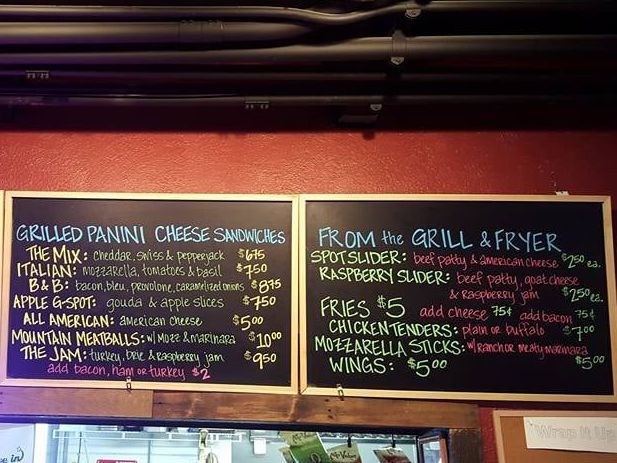 GRILLED PANINI CHEESE SANDWICHES
THE MIX: cheddar, swiss & pepperjack $6.75
ITALIAN: mozzarella, tomatoes & basil $7.50
B & B: bacon, bleu, provolone, caramelized onions $8.75
APPLE G-SPOT: gouda & apple slices $7.50
ALL AMERICAN: american cheese $5.00
MOUNTAIN MEATBALLS: w/ MOZZ & MARINARA $10.00
THE JAM: turkey, brie & Raspberry jam $9.50
add bacon, ham or turkey $2
FROM the GRILL & FRYER
SPOT SLIDER: beef patty & american cheese $2.50 ea.
RASPBERRY SLIDER: beef patty, goat cheese
& raspberry jam $2.50 ea.
FRIES $5 add cheese 75¢ add bacon 75¢
CHICKEN TENDERS: plain or buffalo $7.00
MOZZARELLA STICKS: w/ RANCH OR meaty marinara
WINGS: $5.00 $5.00
Wrap It Up